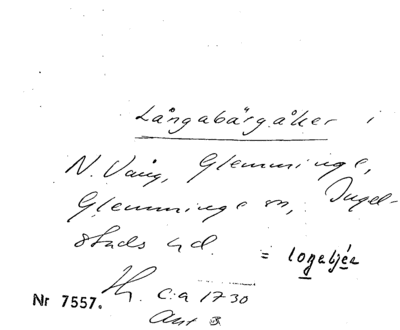 Långabärgåker i
N. Vång, Glemminge,
Glemminge sn, Ingel-
stads hd.
= logebjéa
Nr 7557. Th. c:a 1730
Ant